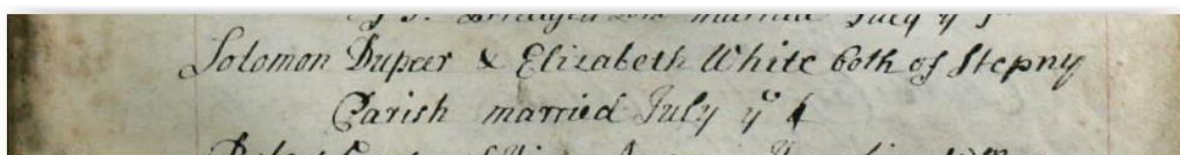 married July yᵉ
Solomon Dupeer & Elizabeth White both of Stepny
Parish married July yᵉ